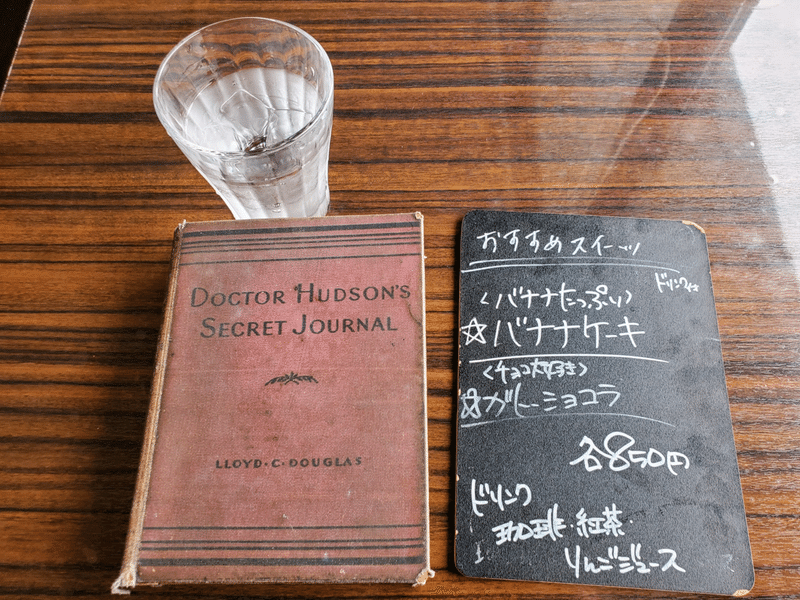 DOCTOR HUDSON'S
SECRET JOURNAL
LLOYD・C・DOUGLAS
おすすめスイーツ
ドリンク付
〈バナナたっぷり〉
☆バナナケーキ
〈チョコ大好き〉
☆ガトーショコラ
各850円
ドリンク
珈琲・紅茶・
りんごジュース